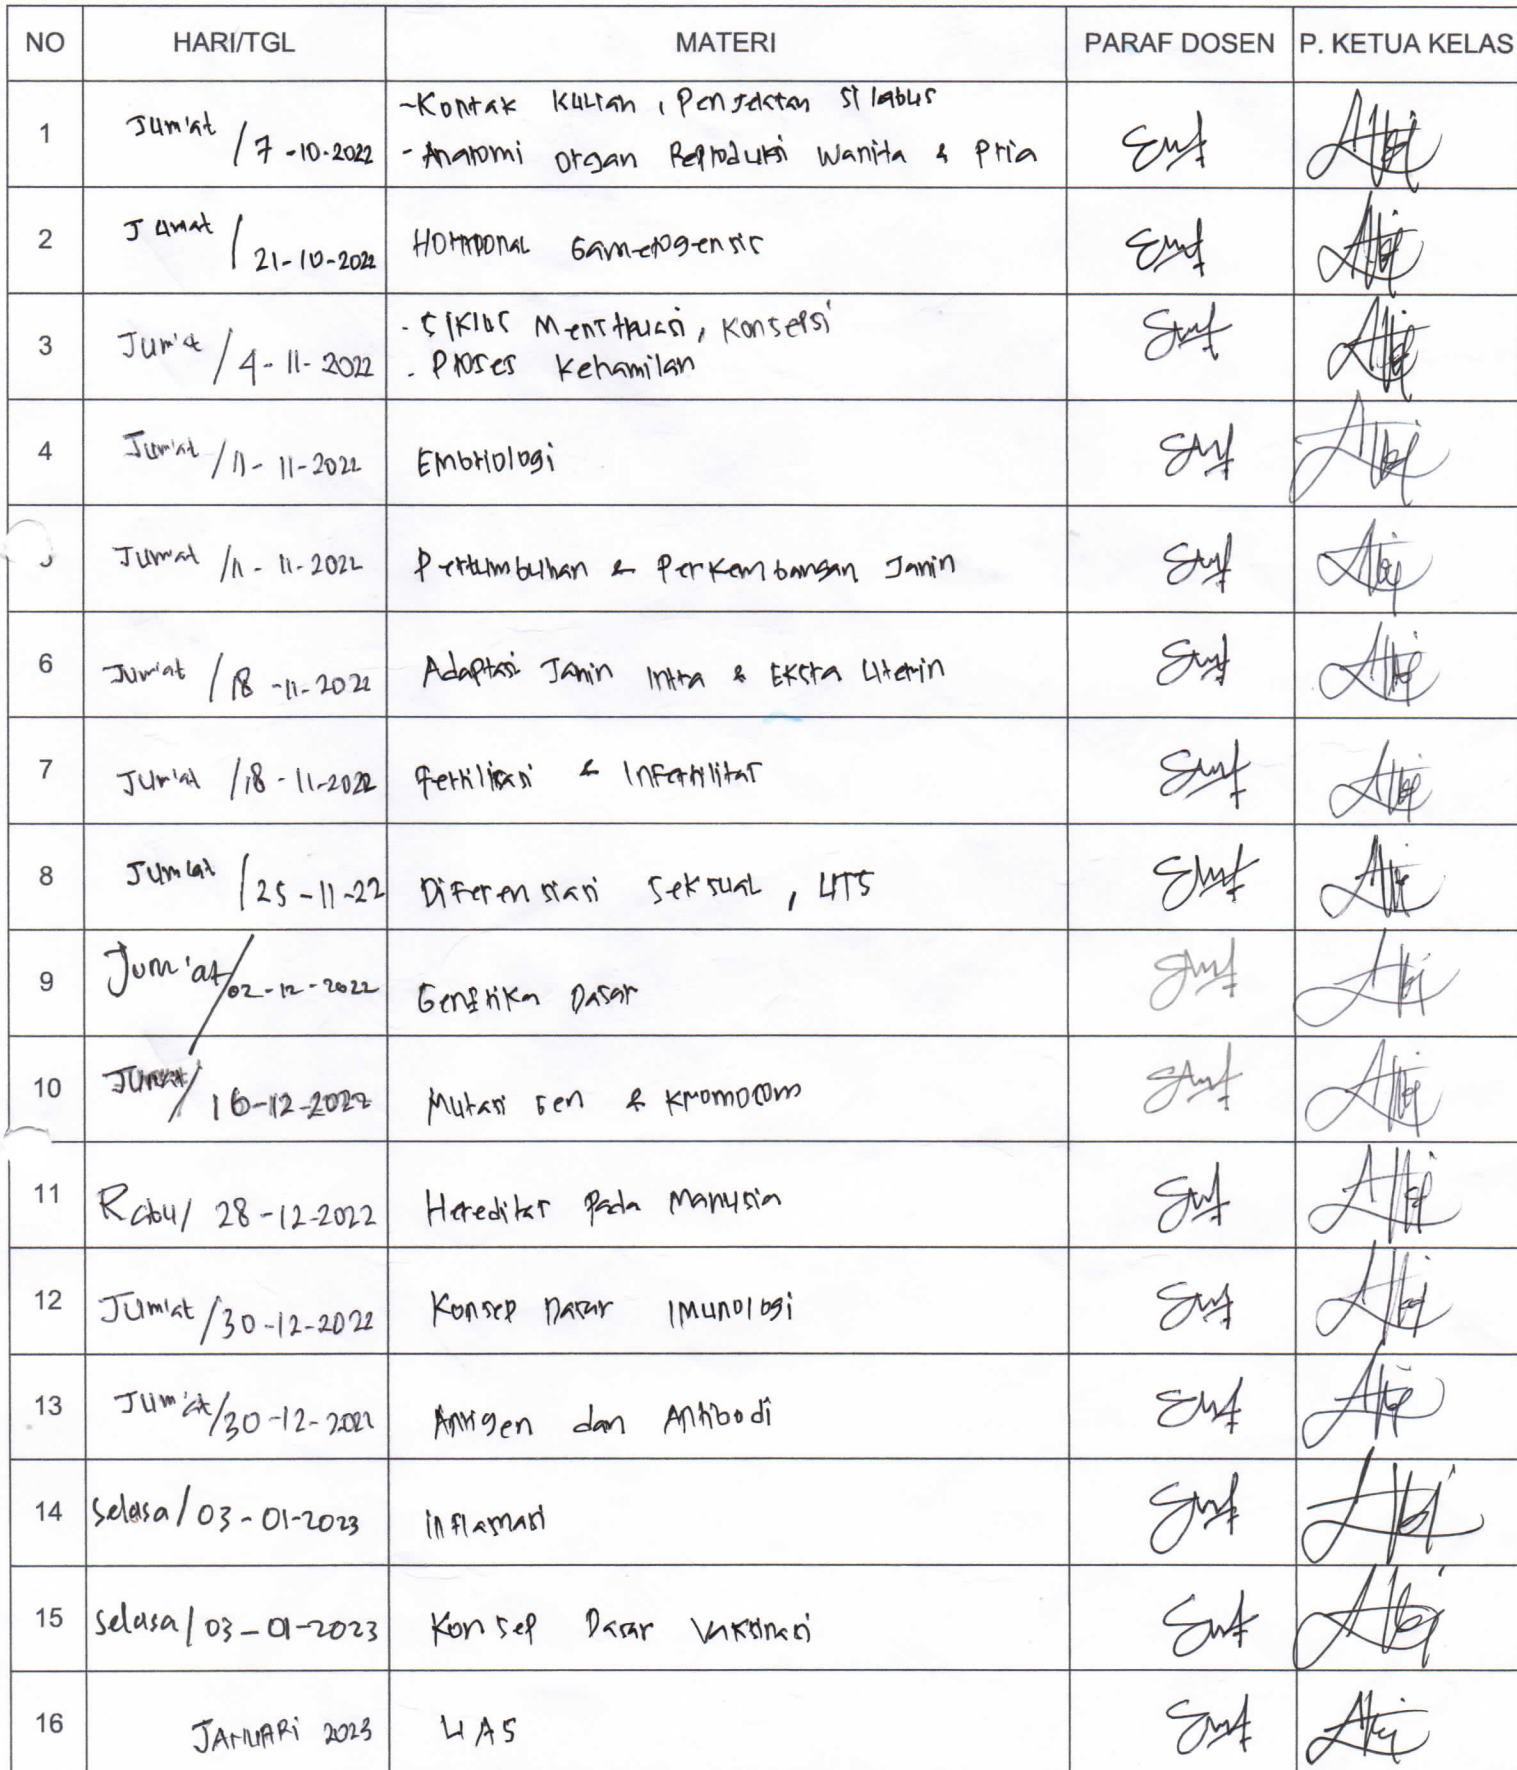 NO HARI/TGL MATERI PARAF DOSEN P. KETUA KELAS
1 Jum'at / 7-10-2022 - Kontrak Kuliah, Penjelasan Silabus
- Anatomi Organ Reproduksi Wanita & Pria
2 Jumat / 21-10-2022 Hormonal Gametogensis
3 Jum'at / 4-11-2022 - Siklus Menstruasi, Konsepsi
- Proses Kehamilan
4 Jum'at / 11-11-2022 Embriologi
Jumat / 11-11-2022 Pertumbuhan & Perkembangan Janin
6 Jum'at / 18-11-2022 Adaptasi Janin Intra & Ekstra Uterin
7 Jum'at / 18-11-2022 Fertilisasi & Infertilitas
8 Jum'at / 25-11-22 Diferensiasi Seksual, UTS
9 Jum'at / 02-12-2022 Genetika Dasar
10 Jumat / 16-12-2022 Mutasi Gen & Kromosom
11 Rabu / 28-12-2022 Hereditas Pada Manusia
12 Jum'at / 30-12-2022 Konsep Dasar Imunologi
13 Jum'at / 30-12-2022 Antigen dan Antibodi
14 Selasa / 03-01-2023 inflamasi
15 Selasa / 03-01-2023 Konsep Dasar Vaksinasi
16 JANUARI 2023 UAS